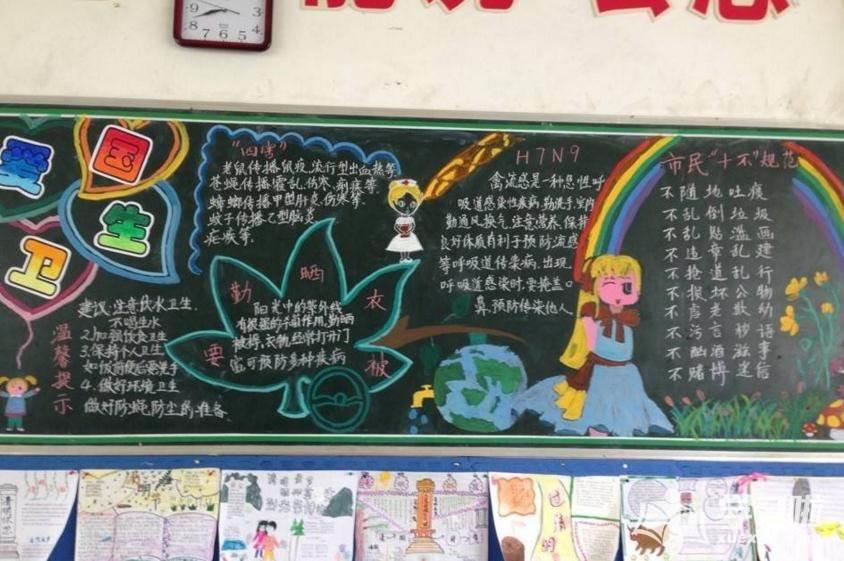 爱国
卫生
"四害"
老鼠传播鼠疫、流行型出血热等
苍蝇传播霍乱、伤寒、痢疾等
蟑螂传播甲型肝炎、伤寒等
蚊子传播乙型脑炎
疟疾等.
H7N9
禽流感是一种急性呼
吸道感染性疾病,勤洗手,室内
勤通风换气、注意营养,保持
良好体质有利于预防流感
等呼吸道传染病,出现
呼吸道感染时要掩盖口
鼻,预防传染他人
市民"十不"规范
不随地吐痰
不乱倒垃圾
不乱贴滥画
不违章乱建
不抢道乱行
不损坏公物
不虐老欺幼
不污言秽语
不酗酒滋事
不赌博迷信
温馨提示
建议:注意饮水卫生.
不喝生水
2.加强饮食卫生
3.保持个人卫生
如饭前便后要洗手
4.做好环境卫生
做好防蝇,防尘的准备
要勤晒衣被
阳光中的紫外线
有很强的杀菌作用,勤晒
被褥,衣物,经常打开门
窗,可预防多种疾病